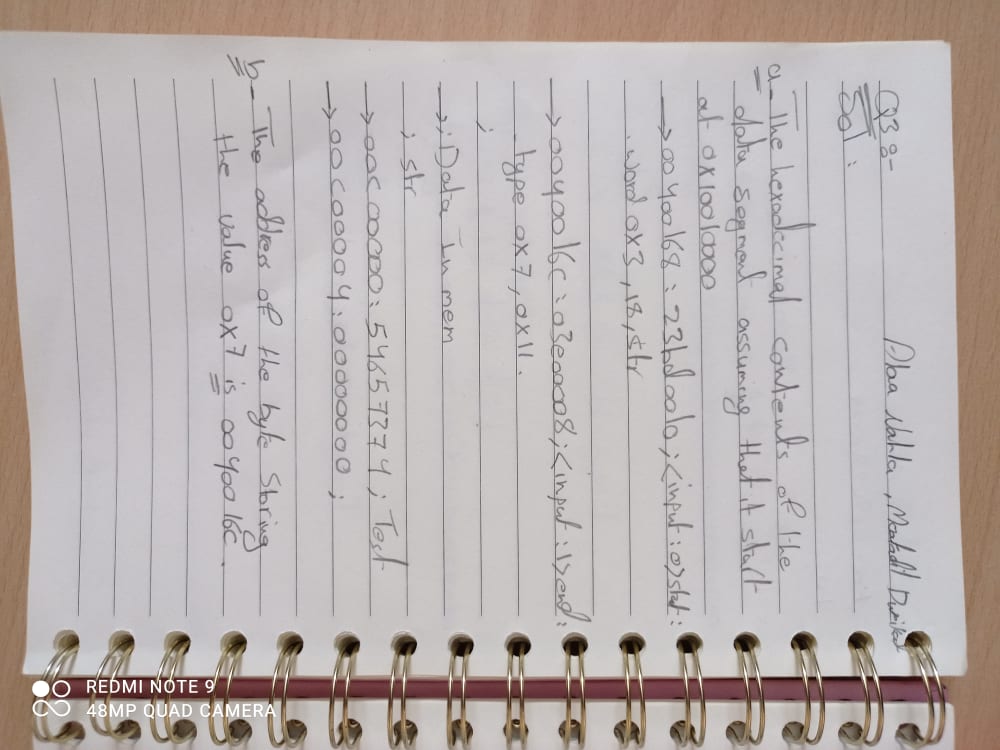 Q3 :-
Sol :
a- The hexadecimal contents of the
data segment assuming that it start
at 0x1001000
→ 00400168 : 23bd0010 ; <input : 0> start :
.word 0x3, 18, str
→ 0040016c : 03e00008 ; <input : 1> end :
type 0x7, 0x11.
;
→ ; Data In mem
; str
→ 00c00000 : 54657374 ; Test
→ 00c00004 : 00000000 ;
b- The address of the byte storing
the value 0x7 is 0040016c .
REDMI NOTE 9
48MP QUAD CAMERA